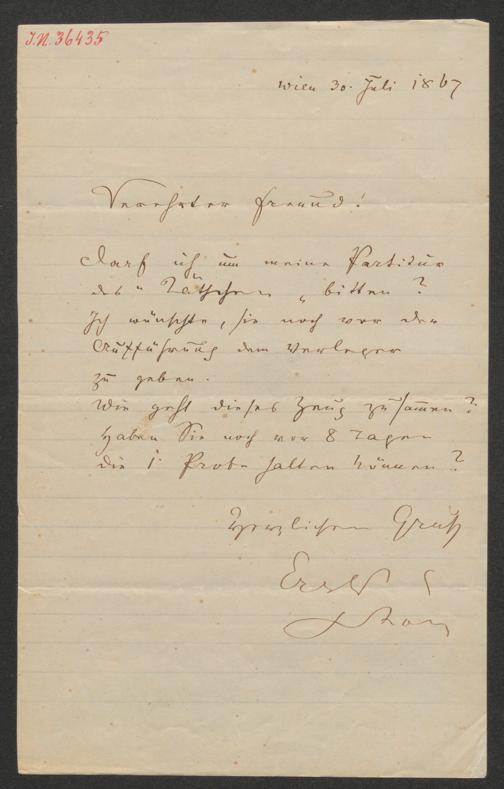 J.N. 36435
Wien 30. Juli 1867
Verehrter Freund!
Darf ich um meine Partitur
des " " bitten?
Ich wünschte, sie noch vor der
Aufführung dem Verleger
zu geben.
Wie geht dieses Zeug zusammen?
Haben Sie noch vor 8 Tagen
die 1. Probe halten können?
Herzlichen Gruß